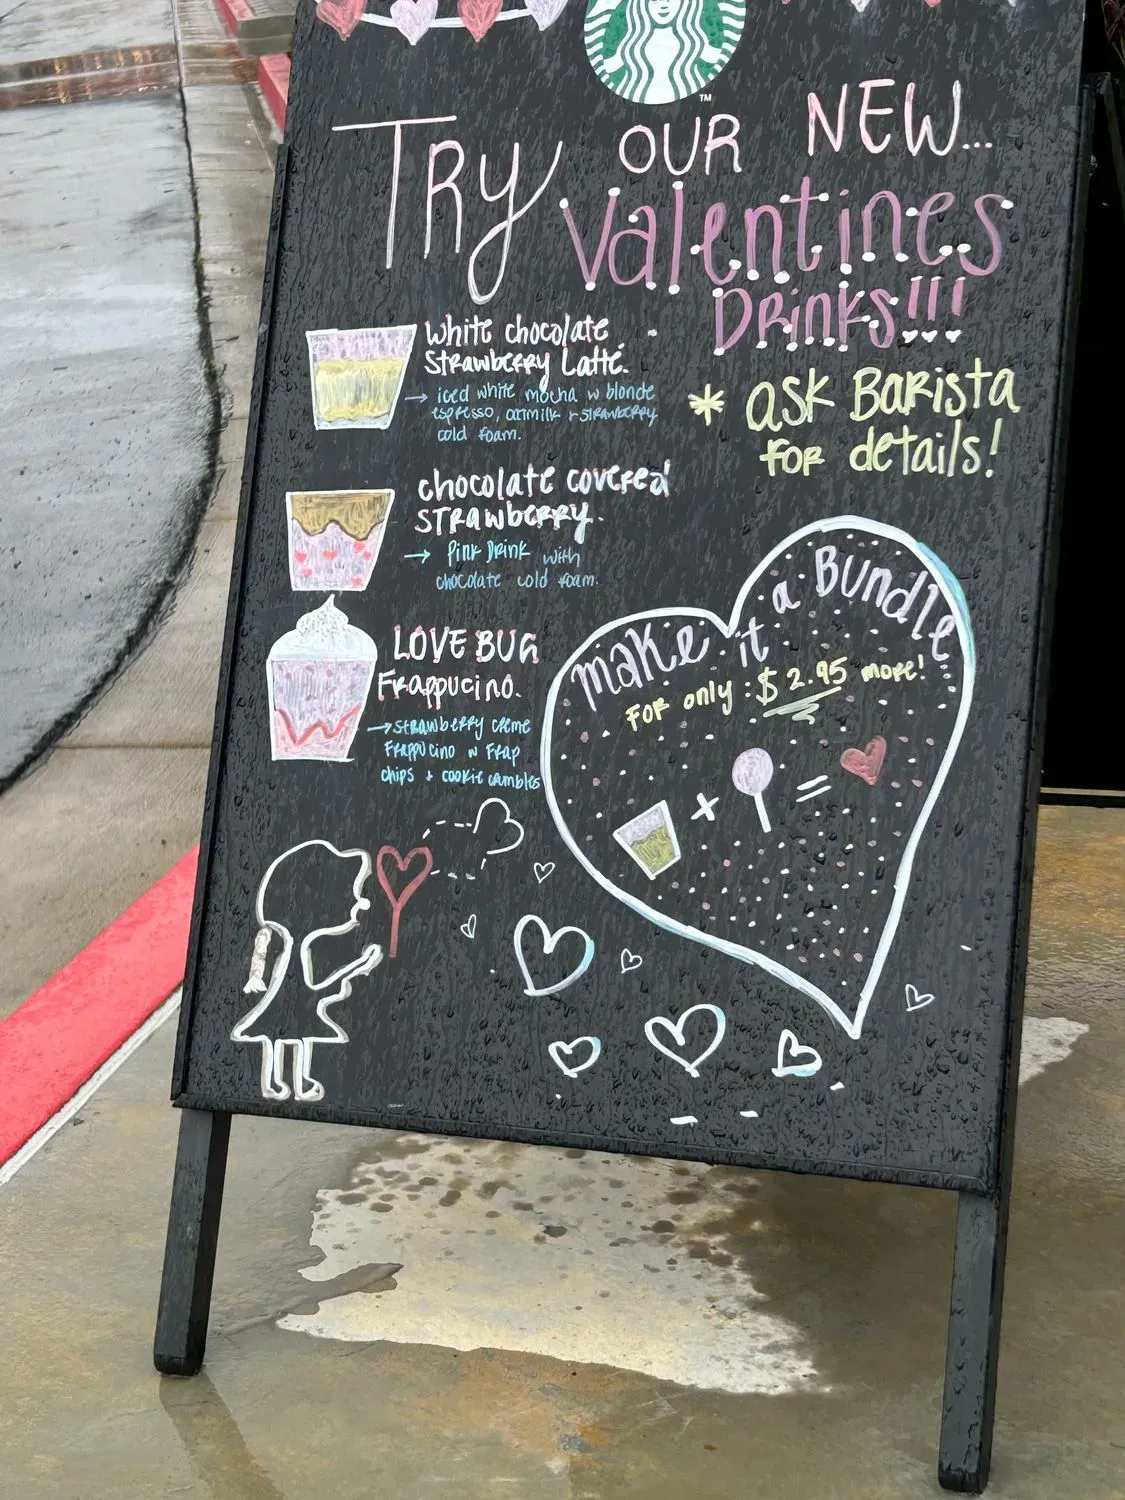 TM
TRY OUR NEW...
Valentines
DRINKS!!!
* ask Barista
FOR details!
white chocolate
Strawberry Latte.
→ iced white mocha w blonde
espresso, oatmilk + strawberry
cold foam.
chocolate covered
STRawberry.
→ Pink Drink with
chocolate cold foam.
LOVE BUG
Frappucino.
→ strawberry creme
Frappucino w Frap
chips + cookie crumbles
make it a Bundle
FOR only: $2.95 more!
x =